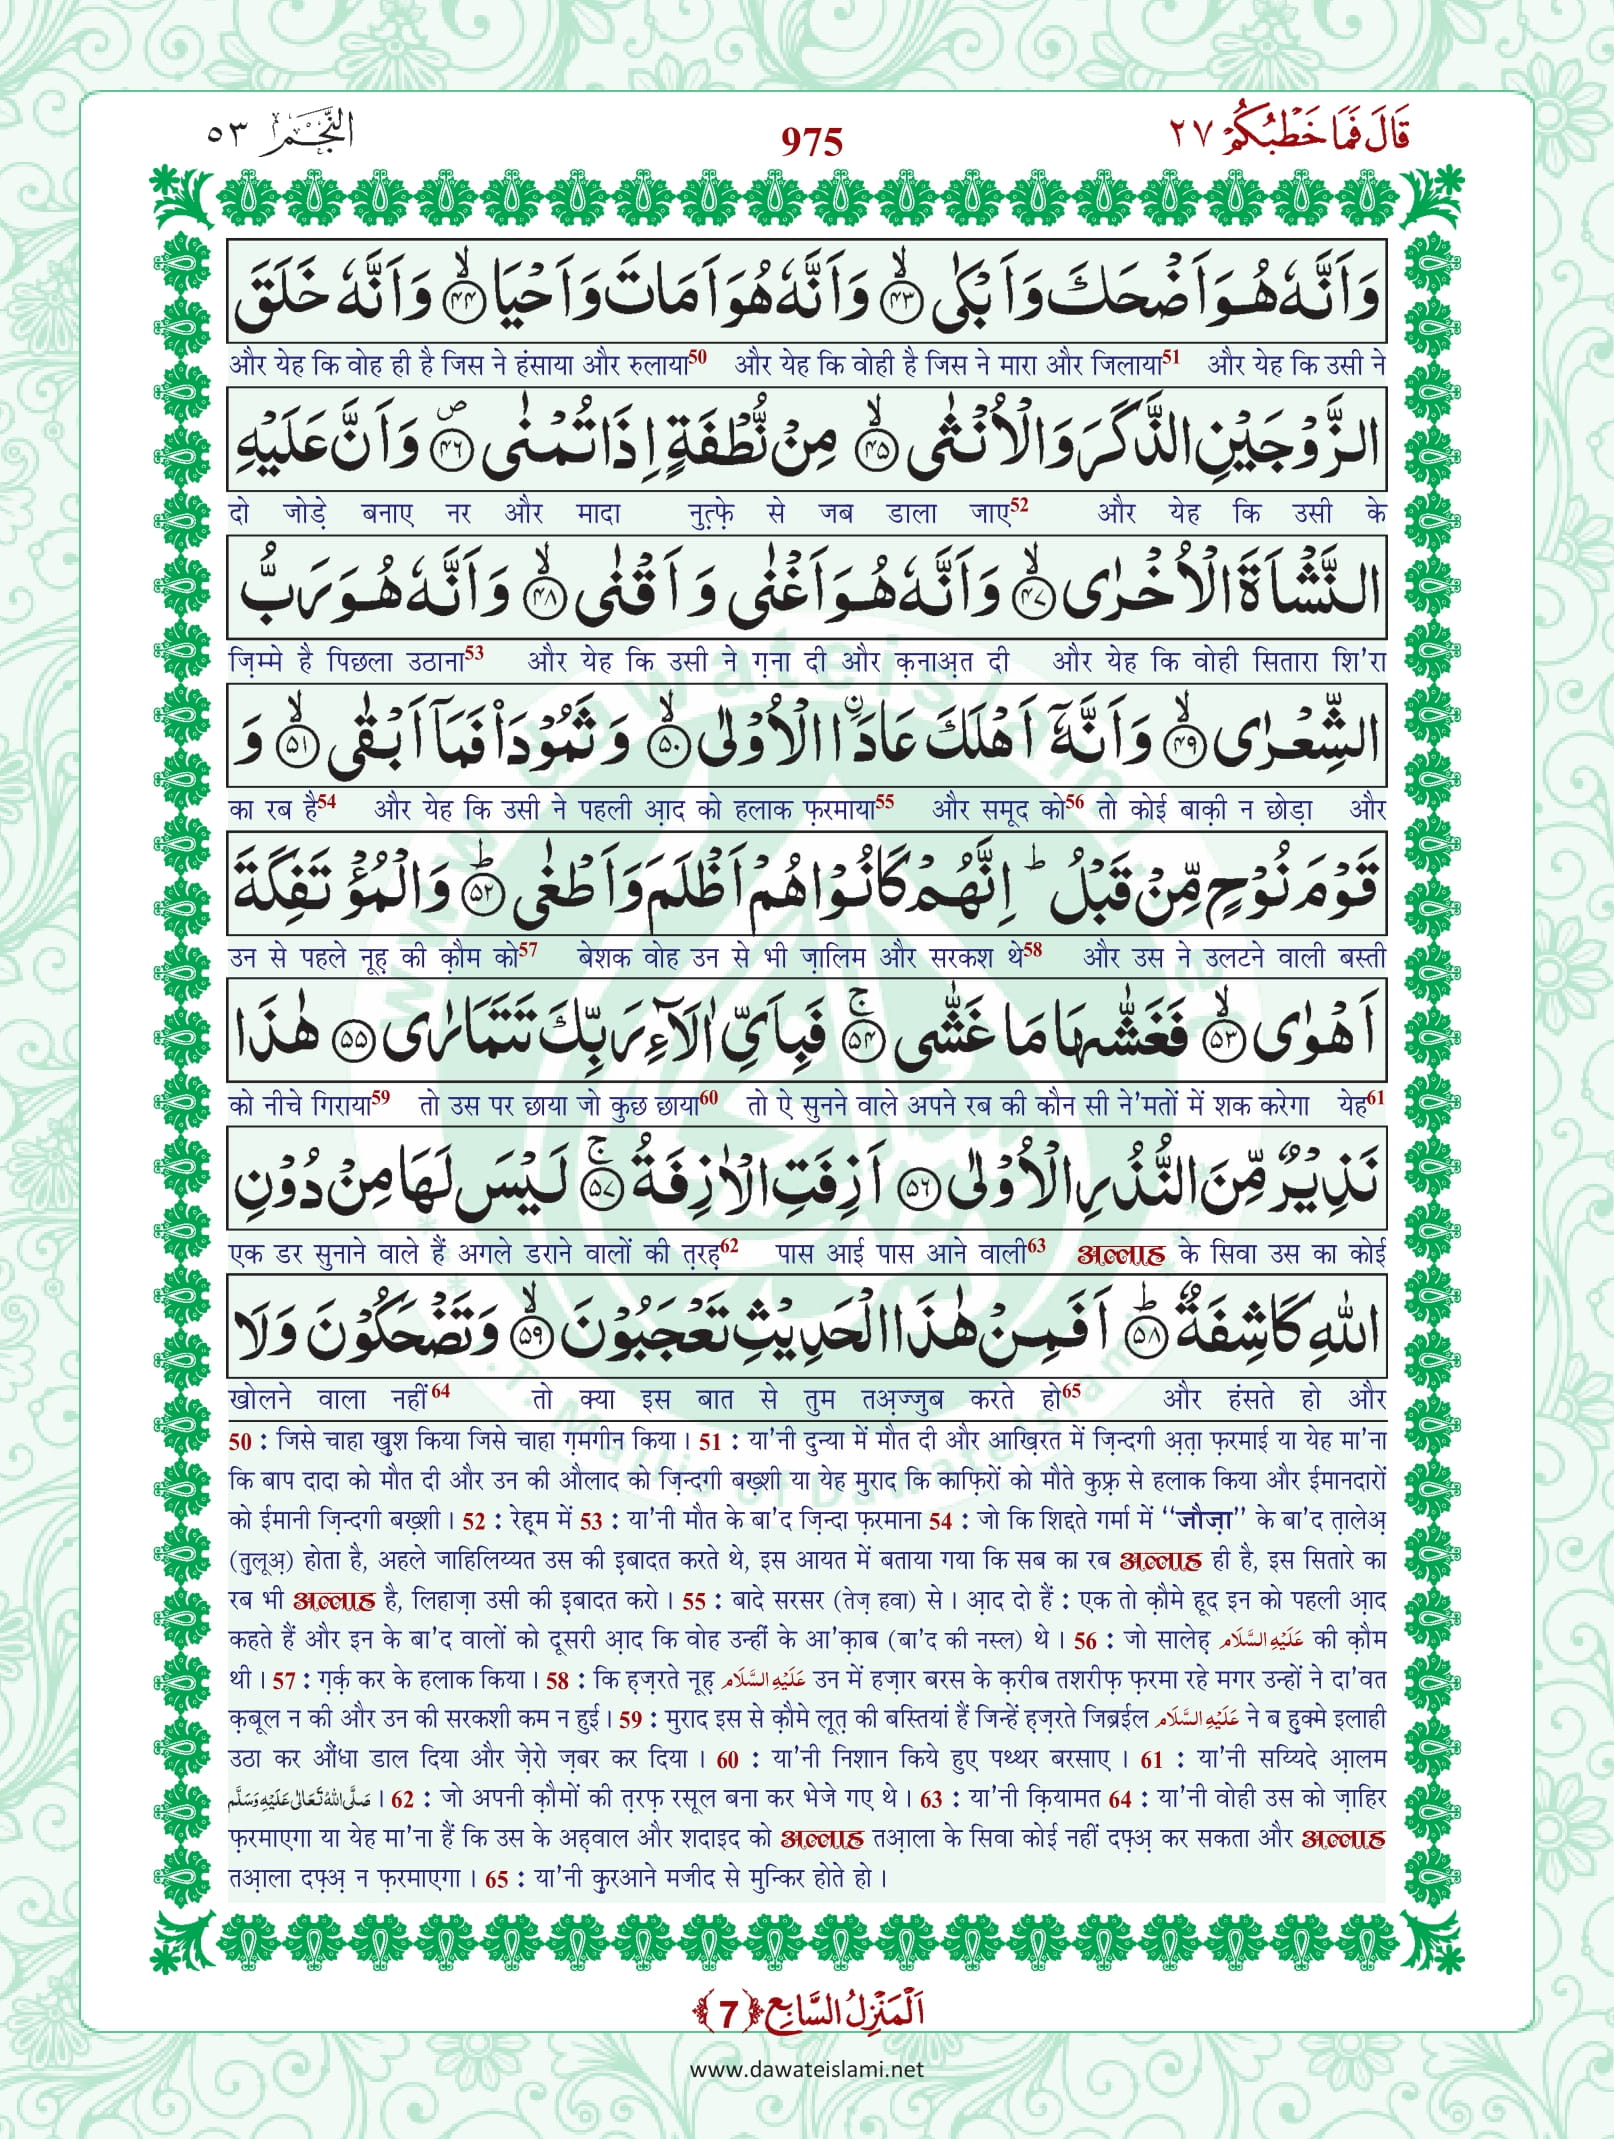 قَالَ فَمَا خَطْبُكُمْ ٢٧
975
النَّجْم ٥٣
وَاَنَّهٗ هُوَ اَضْحَكَ وَاَبْكٰى ۙ﴿۴۳﴾ وَاَنَّهٗ هُوَ اَمَاتَ وَاَحْیَا ۙ﴿۴۴﴾ وَاَنَّهٗ خَلَقَ
और येह कि वोह ही है जिस ने हंसाया और रुलाया50 और येह कि वोही है जिस ने मारा और जिलाया51 और येह कि उसी ने
الزَّوْجَیْنِ الذَّكَرَ وَالْاُنْثٰى ۙ﴿۴۵﴾ مِنْ نُّطْفَةٍ اِذَا تُمْنٰى ۪﴿۴۶﴾ وَاَنَّ عَلَیْهِ
दो जोड़े बनाए नर और मादा नुत्फ़े से जब डाला जाए52 और येह कि उसी के
النَّشْاَةَ الْاُخْرٰى ۙ﴿۴۷﴾ وَاَنَّهٗ هُوَ اَغْنٰى وَاَقْنٰى ۙ﴿۴۸﴾ وَاَنَّهٗ هُوَ رَبُّ
ज़िम्मे है पिछला उठाना53 और येह कि उसी ने ग़ना दी और क़नाअ़त दी और येह कि वोही सितारा शि'रा
الشِّعْرٰى ۙ﴿۴۹﴾ وَاَنَّهٗۤ اَهْلَكَ عَادَاۨ الْاُوْلٰى ۙ﴿۵۰﴾ وَثَمُوْدَاۡ فَمَاۤ اَبْقٰى ۙ﴿۵۱﴾ وَ
का रब है54 और येह कि उसी ने पहली आ़द को हलाक फ़रमाया55 और समूद को56 तो कोई बाक़ी न छोड़ा और
قَوْمَ نُوْحٍ مِّنْ قَبْلُ ؕ اِنَّهُمْ كَانُوْا هُمْ اَظْلَمَ وَاَطْغٰى ؕ﴿۵۲﴾ وَالْمُؤْتَفِكَةَ
उन से पहले नूह़ की क़ौम को57 बेशक वोह उन से भी ज़ालिम और सरकश थे58 और उस ने उलटने वाली बस्ती
اَهْوٰى ۙ﴿۵۳﴾ فَغَشّٰىهَا مَا غَشّٰى ۚ﴿۵۴﴾ فَبِاَیِّ اٰلَآءِ رَبِّكَ تَتَمَارٰى ﴿۵۵﴾ هٰذَا
को नीचे गिराया59 तो उस पर छाया जो कुछ छाया60 तो ऐ सुनने वाले अपने रब की कौन सी ने'मतों में शक करेगा येह61
نَذِیْرٌ مِّنَ النُّذُرِ الْاُوْلٰى ﴿۵۶﴾ اَزِفَتِ الْاٰزِفَةُ ۚ﴿۵۷﴾ لَیْسَ لَهَا مِنْ دُوْنِ
एक डर सुनाने वाले हैं अगले डराने वालों की त़रह़62 पास आई पास आने वाली63 अल्लाह के सिवा उस का कोई
اللّٰهِ كَاشِفَةٌ ؕ﴿۵۸﴾ اَفَمِنْ هٰذَا الْحَدِیْثِ تَعْجَبُوْنَ ۙ﴿۵۹﴾ وَتَضْحَكُوْنَ وَلَا
खोलने वाला नहीं64 तो क्या इस बात से तुम तअ़ज्जुब करते हो65 और हंसते हो और
50 : जिसे चाहा खुश किया जिसे चाहा ग़मगीन किया। 51 : या'नी दुन्या में मौत दी और आख़िरत में ज़िन्दगी अ़त़ा फ़रमाई या येह मा'ना
कि बाप दादा को मौत दी और उन की औलाद को ज़िन्दगी बख़्शी या येह मुराद कि काफ़िरों को मौते कुफ़्र से हलाक किया और ईमानदारों
को ईमानी ज़िन्दगी बख़्शी। 52 : रेह़्म में 53 : या'नी मौत के बा'द ज़िन्दा फ़रमाना 54 : जो कि शिद्दते गर्मा में "जौज़ा" के बा'द त़ालेअ़
(तुलूअ़) होता है, अहले जाहिलिय्यत उस की इ़बादत करते थे, इस आयत में बताया गया कि सब का रब अल्लाह ही है, इस सितारे का
रब भी अल्लाह है, लिहाज़ा उसी की इ़बादत करो। 55 : बादे सरसर (तेज़ हवा) से। आ़द दो हैं : एक तो क़ौमे हूद इन को पहली आ़द
कहते हैं और इन के बा'द वालों को दूसरी आ़द कि वोह उन्हीं के आ'क़ाब (बा'द की नस्ल) थे। 56 : जो सालेह़ عَلَيْهِ السَّلَام की क़ौम
थी। 57 : ग़र्क़ कर के हलाक किया। 58 : कि ह़ज़रते नूह़ عَلَيْهِ السَّلَام उन में हज़ार बरस के क़रीब तशरीफ़ फ़रमा रहे मगर उन्हों ने दा'वत
क़बूल न की और उन की सरकशी कम न हुई। 59 : मुराद इस से क़ौमे लूत़ की बस्तियां हैं जिन्हें ह़ज़रते जिब्रईल عَلَيْهِ السَّلَام ने ब हुक्मे इलाही
उठा कर औंधा डाल दिया और ज़ेरो ज़बर कर दिया। 60 : या'नी निशान किये हुए पथ्थर बरसाए। 61 : या'नी सय्यिदे आ़लम
صَلَّى اللهُ تَعَالٰى عَلَيْهِ وَسَلَّم । 62 : जो अपनी क़ौमों की त़रफ़ रसूल बना कर भेजे गए थे। 63 : या'नी क़ियामत 64 : या'नी वोही उस को ज़ाहिर
फ़रमाएगा या येह मा'ना हैं कि उस के अह़वाल और शदाइद को अल्लाह तआ़ला के सिवा कोई नहीं दफ़्अ़ कर सकता और अल्लाह
तआ़ला दफ़्अ़ न फ़रमाएगा। 65 : या'नी कुरआने मजीद से मुन्किर होते हो।
اَلْمَنْزِلُ السَّابِع ﴿7﴾
www.dawateislami.net